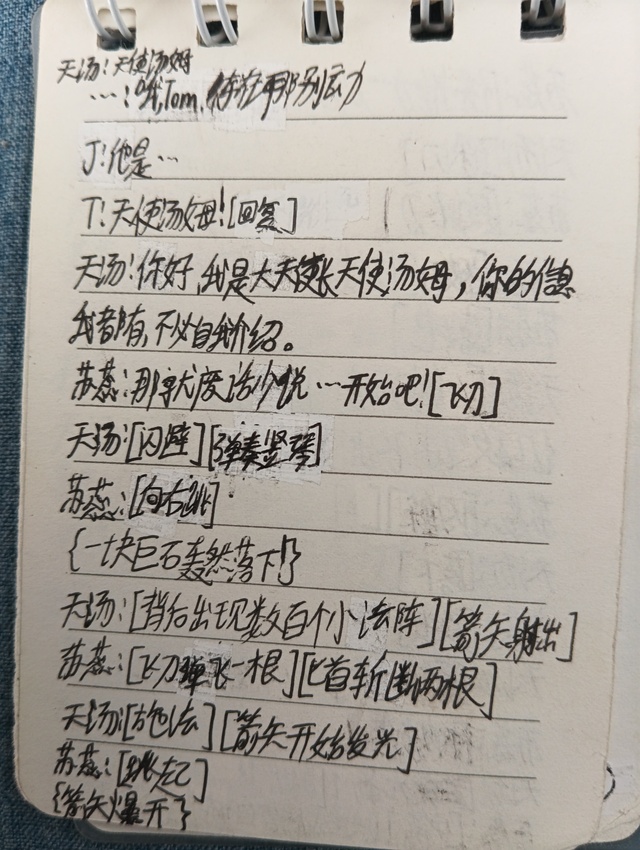 天汤:天使汤姆
…:哦,Tom,你在那别动
J:他是…
T:天使汤姆![回答]
天汤:你好,我是大天使长天使汤姆,你的信息
我都有,不必自我介绍。
苏蕊:那就废话少说…开始吧![飞刀]
天汤:[闪避][弹奏竖琴]
苏蕊:[向右跳]
{一块巨石轰然落下!}
天汤:[背后出现数百个小法阵][箭矢射出]
苏蕊:[飞刀弹飞一根][匕首斩断两根]
天汤:[施法][箭矢开始发光]
苏蕊:[跳起]
{箭矢爆开}